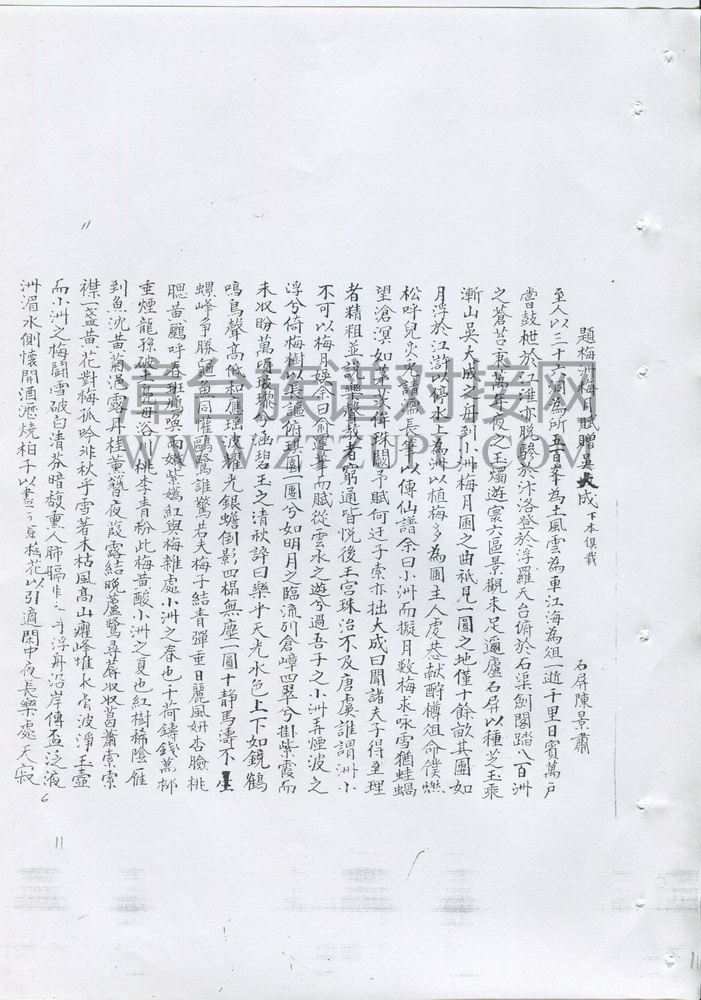 題梅洲梅月賦贈吳大成 下本俱載
石屏陳景肅
至人以三十六洞為所五百峯為土風雲為車江海為俎一遊千里日賓萬戶
嘗鼓枻於江淮亦脫驂於汴洛登於浮羅天台俯於石渠劍閣踏八百洲
之蒼苔秉萬年夜之玉燭遊寰六區景觀未足遍廬石屏以種芝玉乘
漸山吳大成之舟到小洲梅月圃之曲祇見一圓之地僅十餘畝其團如
月浮於江諸以停水上為洲以植梅多為圃主人虔恭献酧樽俎命僕燃
松呼兒炙 諸需長 以傳仙譜余曰小洲而擬月數梅求咏雪猶蛙蝸
望滄溟如 併珠闕予賦何迂子索亦拙大成曰聞諸夫子得至理
者精粗並説樂聲哉者窮通皆悦後王宮珠治不及唐虞誰謂洲小
不可以梅月娱余曰俞援筆而賦從雲水之遊兮過吾子之小洲弄煙波之
浮兮倚梅樹以長謳俯琪園一團兮如明月之臨流列倉嶂四翠兮掛紫霞而
未収盼萬頃玻瓈兮涵碧玉之清秋諱曰樂乎天光水色上下如鏡鶴
鳴鳥聲高低和應瑶波耀光銀蟾倒影四榻無塵一圓十靜馬濤不
螺峰争勝龜魚同 鷗鷺誰驚若夫梅子結青彈垂日麗風妍杏臉桃
腮黄鸝呼春班鳩喚雨嫩紫嬌紅與梅雜處小洲之春也千荷鑄錢萬柳
垂煙龍孫破玉悦母浴川桃李青粉此梅黄酸小洲之夏也紅樹稀陰雁
到魚沈黄菊浥露丹桂薰簪夜葭露結晚蘆鷺尋蓴収収菖蕭索索
襟一盞黄花對梅孤吟洲秋乎雪著木枯風高山癯峰堆水骨波淨玉壺
而小洲之梅鬪雪破白清芬暗馥薰人肺膈 浮舟沿岸傳盃泛液
洲湄水側懷開酒瀝燒柏子以晝 梅花以引適閑中夜長樂處天寂
WWW.ZTZUPU.COM
章台族谱对接网
6
11